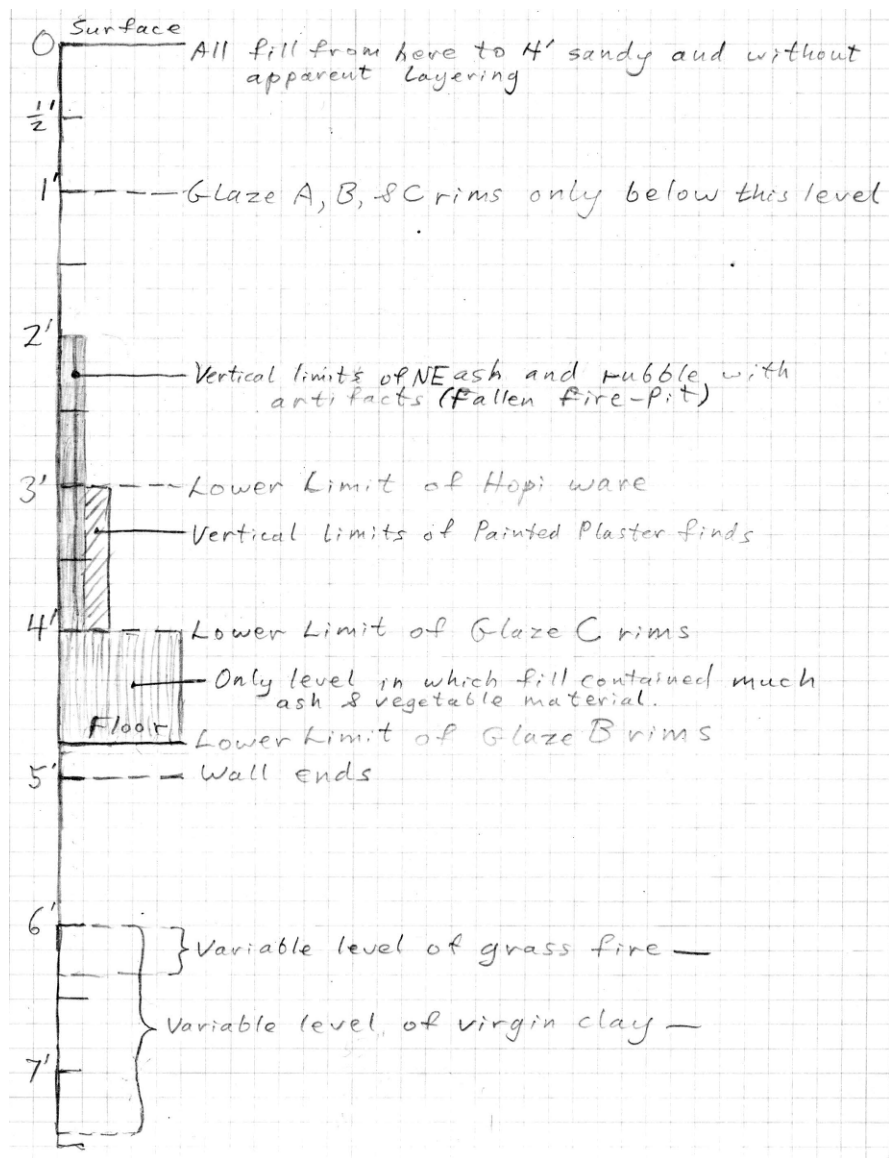 Surface
0
All fill from here to 4' sandy and without
apparent Layering
1/2'
1'
Glaze A, B, & C rims only below this level
2'
Vertical limits of NE ash and rubble with
artifacts (Fallen Fire-Pit)
3'
Lower Limit of Hopi ware
Vertical limits of Painted Plaster finds
4'
Lower Limit of Glaze C rims
Only level in which fill contained much
ash & vegetable material.
Floor
Lower Limit of Glaze B rims
5'
Wall ends
6'
Variable level of grass fire
Variable level of virgin clay
7'